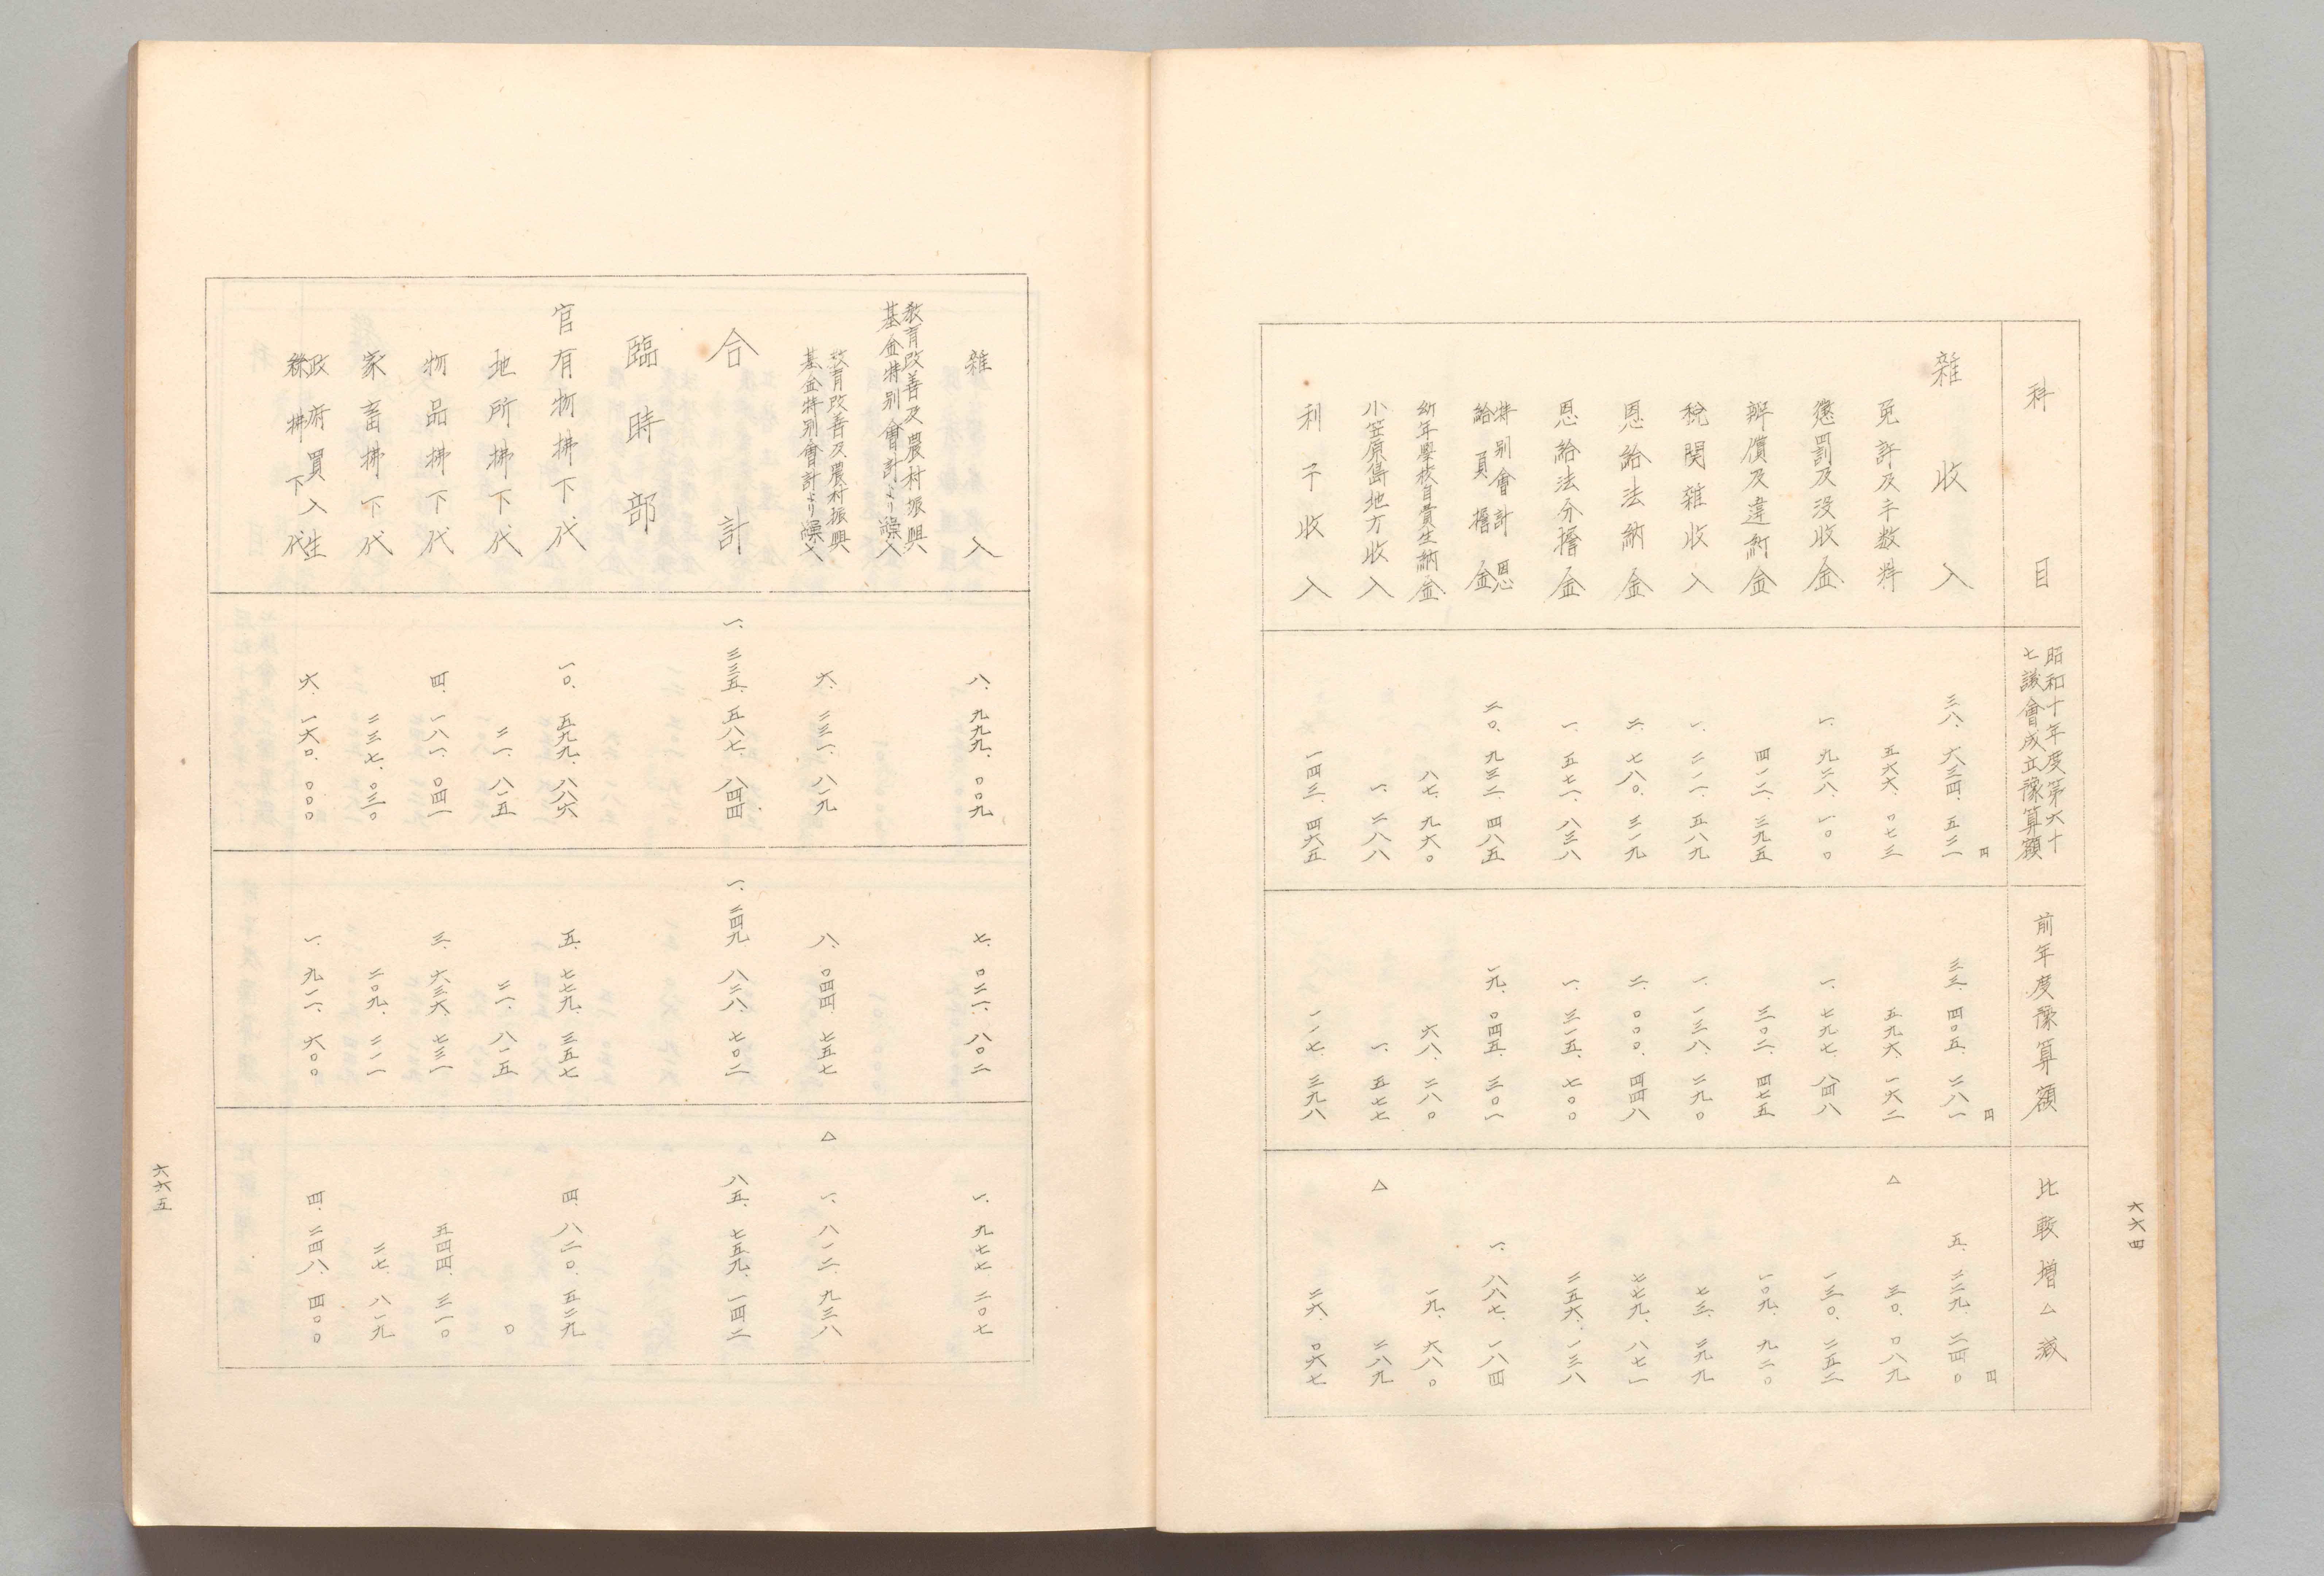 六六四
科目 昭和十年度第六十七議會成立豫算額 前年度豫算額 比較増△減
雜收入 三八、六三四、五二一円 三三、四〇五、二八一円 五、二二九、二四〇円
免許及手数料 五六六、〇七三 五九六、一六二 △ 三〇、〇八九
懲罰及没收金 一、九二八、一〇〇 一、七九七、八四八 一三〇、二五二
辨償及違約金 四一二、三九五 三〇二、四七五 一〇九、九二〇
稅関雜收入 一、二一一、五八九 一、一三八、二九〇 七三、二九九
恩給法納金 二、七八〇、三一九 二、〇〇〇、四四八 七七九、八七一
恩給法分擔金 一、五七一、八三八 一、三一五、七〇〇 二五六、一三八
特別會計恩
給負擔金 二〇、九三二、四八五 一九、〇四五、三〇一 一、八八七、一八四
幼年學校自費生納金 八七、九六〇 六八、二八〇 一九、六八〇
小笠原島地方收入 一、二八八 一、五七七 △ 二八九
利子收入 一四三、四六五 一一七、三九八 二六、〇六七
雜入 八、九九九、〇〇九 七、〇二一、八〇二 一、九七七、二〇七
教育改善及農村振興
基金特別會計より繰入
教育改善及農村振興
基金特別會計より繰入 六、二三一、八一九 八、〇四四、七五七 △ 一、八一二、九三八
合計 一、三三五、五八七、八四四 一、二四九、八二八、七〇二 八五、七五九、一四二
臨時部
官有物拂下代 一〇、五九九、八八六 五、七七九、三五七 四、八二〇、五二九
地所拂下代 二一、八一五 二一、八一五 〇
物品拂下代 四、一八一、〇四一 三、六三六、七三一 五四四、三一〇
家畜拂下代 二三七、〇三〇 二〇九、二一一 二七、八一九
政府買入生
絲拂下代 六、一六〇、〇〇〇 一、九一一、六〇〇 四、二四八、四〇〇
六六五